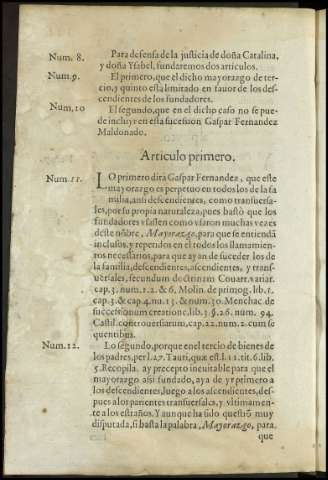 Num. 8. Para defensa de la justicia de doña Catalina,
y doña Ysabel, fundaremos dos articulos.
Num. 9. El primero, que el dicho mayorazgo de ter-
cio, y quinto està limitado en fauor de los des-
cendientes de los fundadores.
Num. 10 El segundo, que en el dicho caso no se pue-
de incluyr en esta sucession Gaspar Fernandez
Maldonado.
Articulo primero.
Num. 11. LO primero dirà Gaspar Fernandez, que este
mayorazgo es perpetuo en todos los de la fa
milia, assi descendientes, como transuersa-
les, por su propia naturaleza, pues bastò que los
fundadores vsassen como vsaron muchas vezes
deste nõbre, Mayorazgo, para que se entiendã
inclusos, y repetidos en el todos los llamamien-
tos necessarios, para que ayan de suceder los de
la familia, descendientes, ascendientes, y trans-
uersales, secundum doctrinam Couarr. variar.
cap. 5. num. 1. 2. & 6. Molin. de primog. lib. 1.
cap. 5. & cap. 4. nu. 13. & num. 30. Menchac. de
successionum creatione, lib. 3. §. 26. num. 94.
Castil. controuersiarum, cap. 22. num. 2. cum se
quentibus.
Num. 12. Lo segundo, porque en el tercio de bienes de
los padres, per l. 27. Tauri, quæ est l. 11. tit. 6. lib.
5. Recopila. ay precepto ineuitable para que el
mayorazgo assi fundado, aya de yr primero a
los descendientes, luego a los ascendientes, des-
pues a los parientes transuersales, y vltimamen-
te a los estraños. Y aunque ha sido questiõ muy
disputada, si basta la palabra, Mayorazgo, para,
que